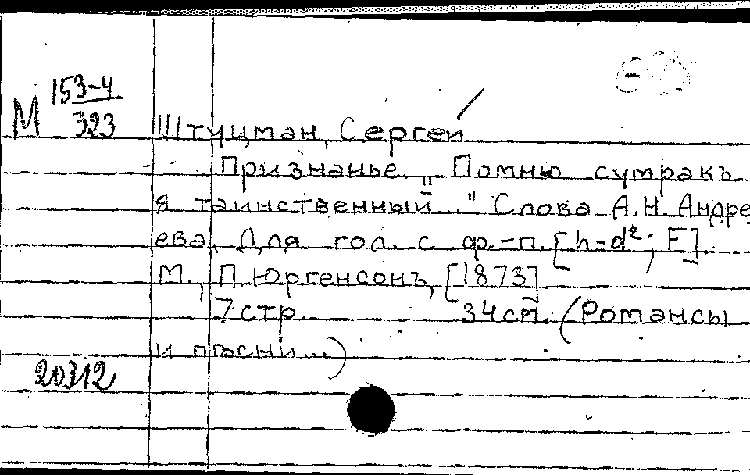 М 153-4
323
Штуцман, Сергей
Признанье. „Помню сумракъ
я таинственный..." Слова А.Н. Андре
ева. Для гол. с ф.-п. [h-d²; F].
М., П. Юргенсонъ, [1873]
7 стр. 34 см. (Романсы
и пѣсни...)
20312